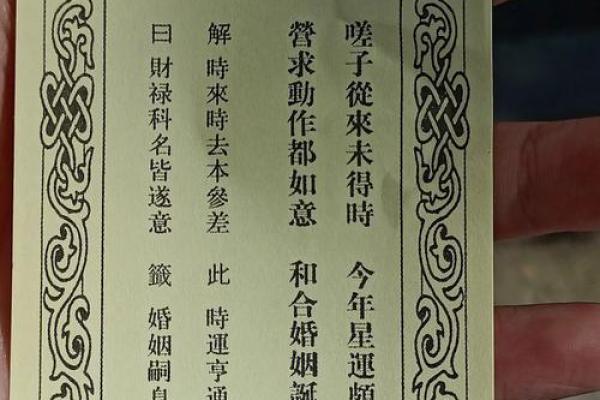 嗟子從來未得時 今年星運頗
營求動作都如意 和合婚姻誕
解 時來時去本參差 此 時運亨通
曰 財祿科名皆遂意 籤 婚姻嗣